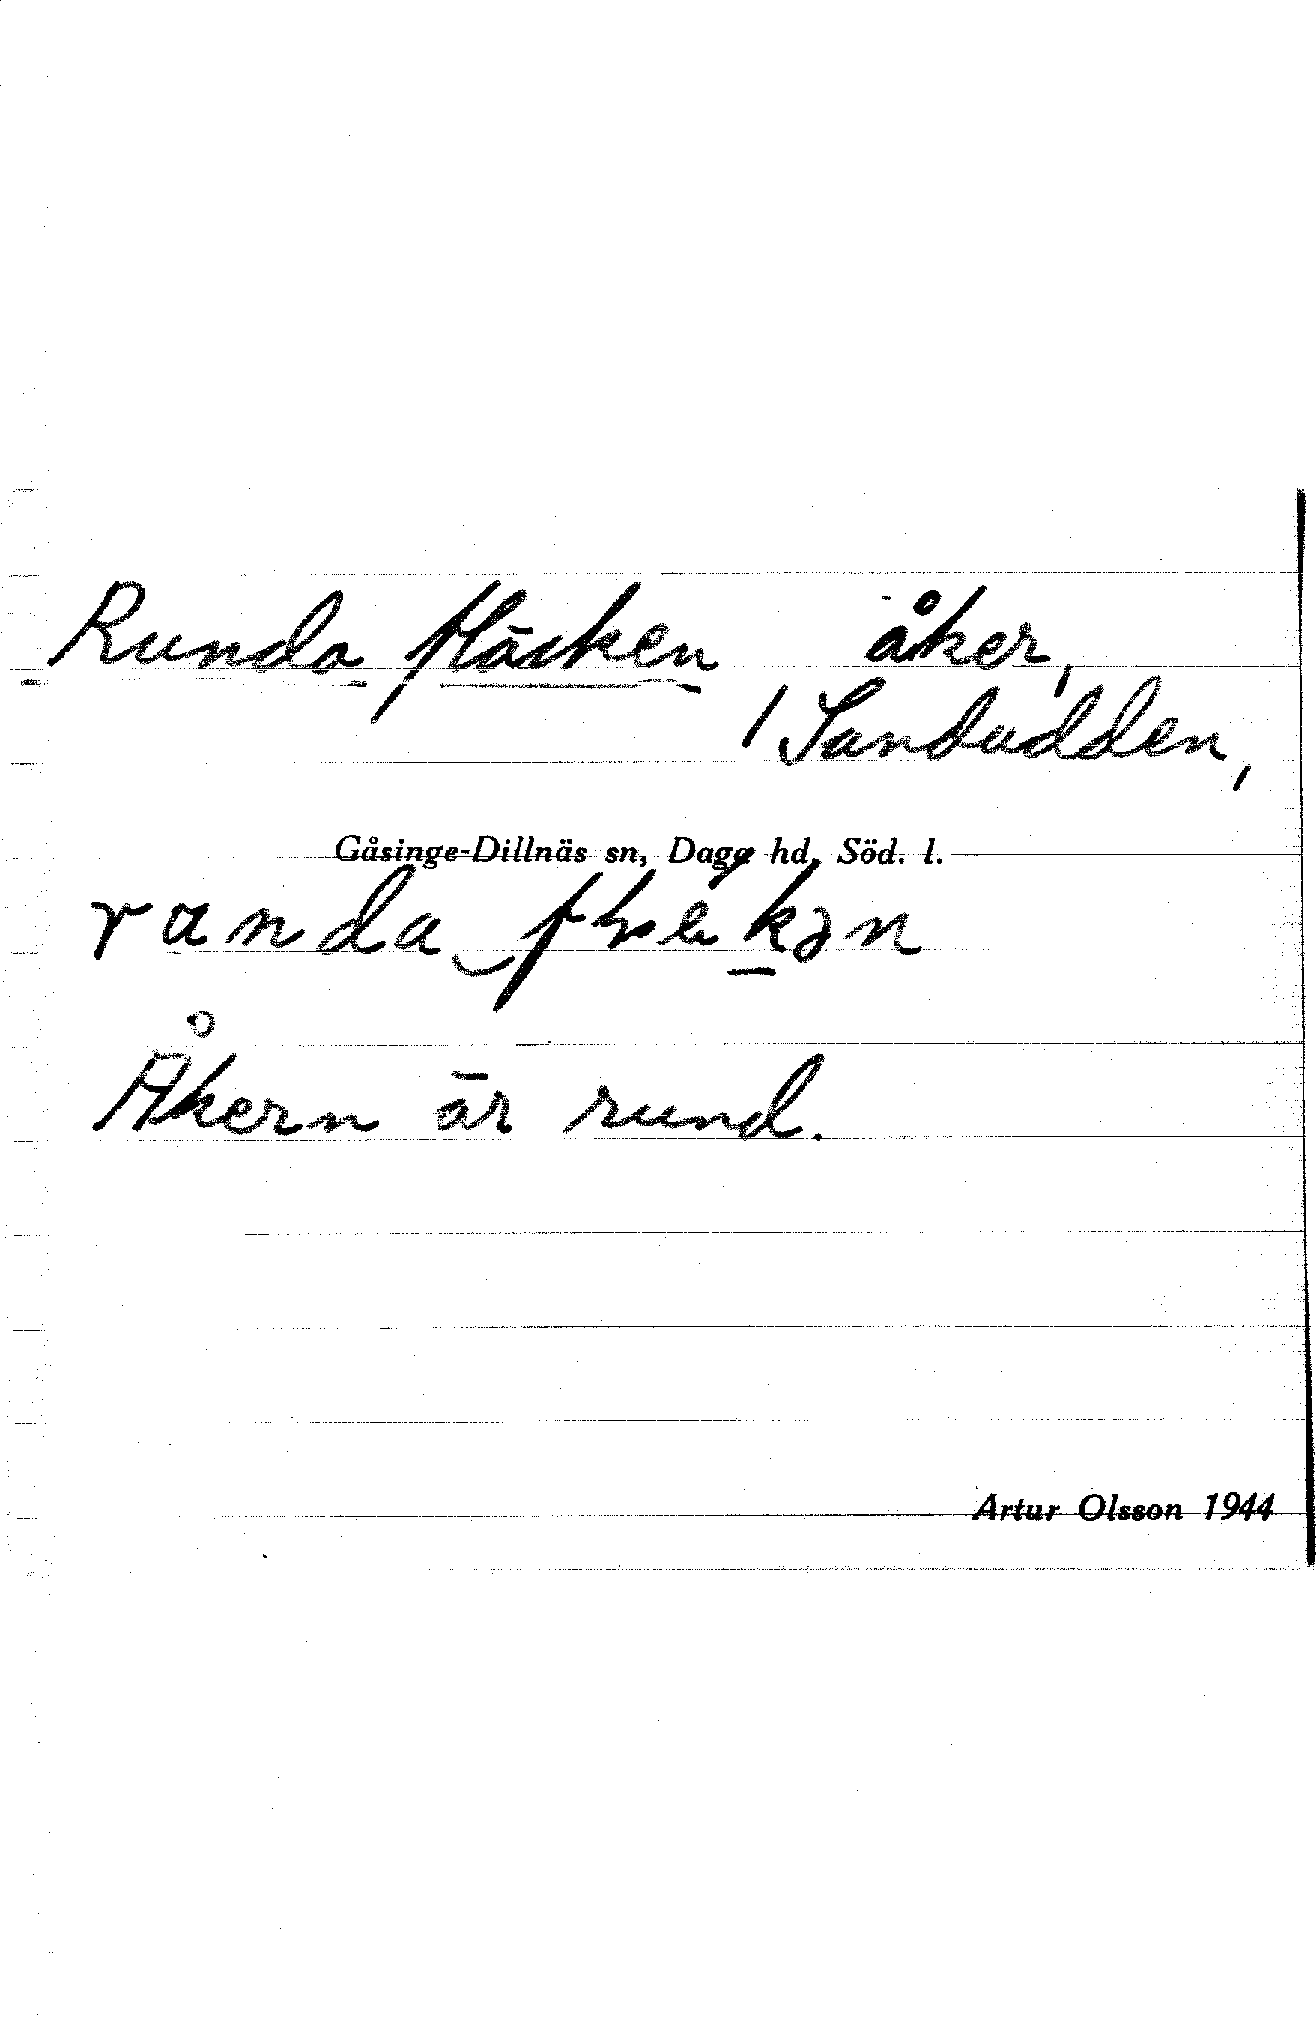 Runda fläcken åker,
/ Sandudden,
Gåsinge-Dillnäs sn, Daga hd, Söd. l.
Åkern är rund.
Artur Olsson 1944